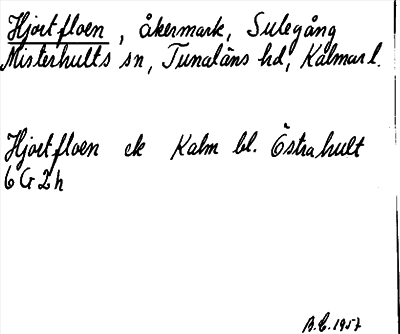 Hjortfloen, åkermark, Sulegång
Misterhults sn, Tunaläns hd, Kalmar l.
Hjortfloen ek Kalm bl. Östrahult
6 G 2 h
B.E. 1957